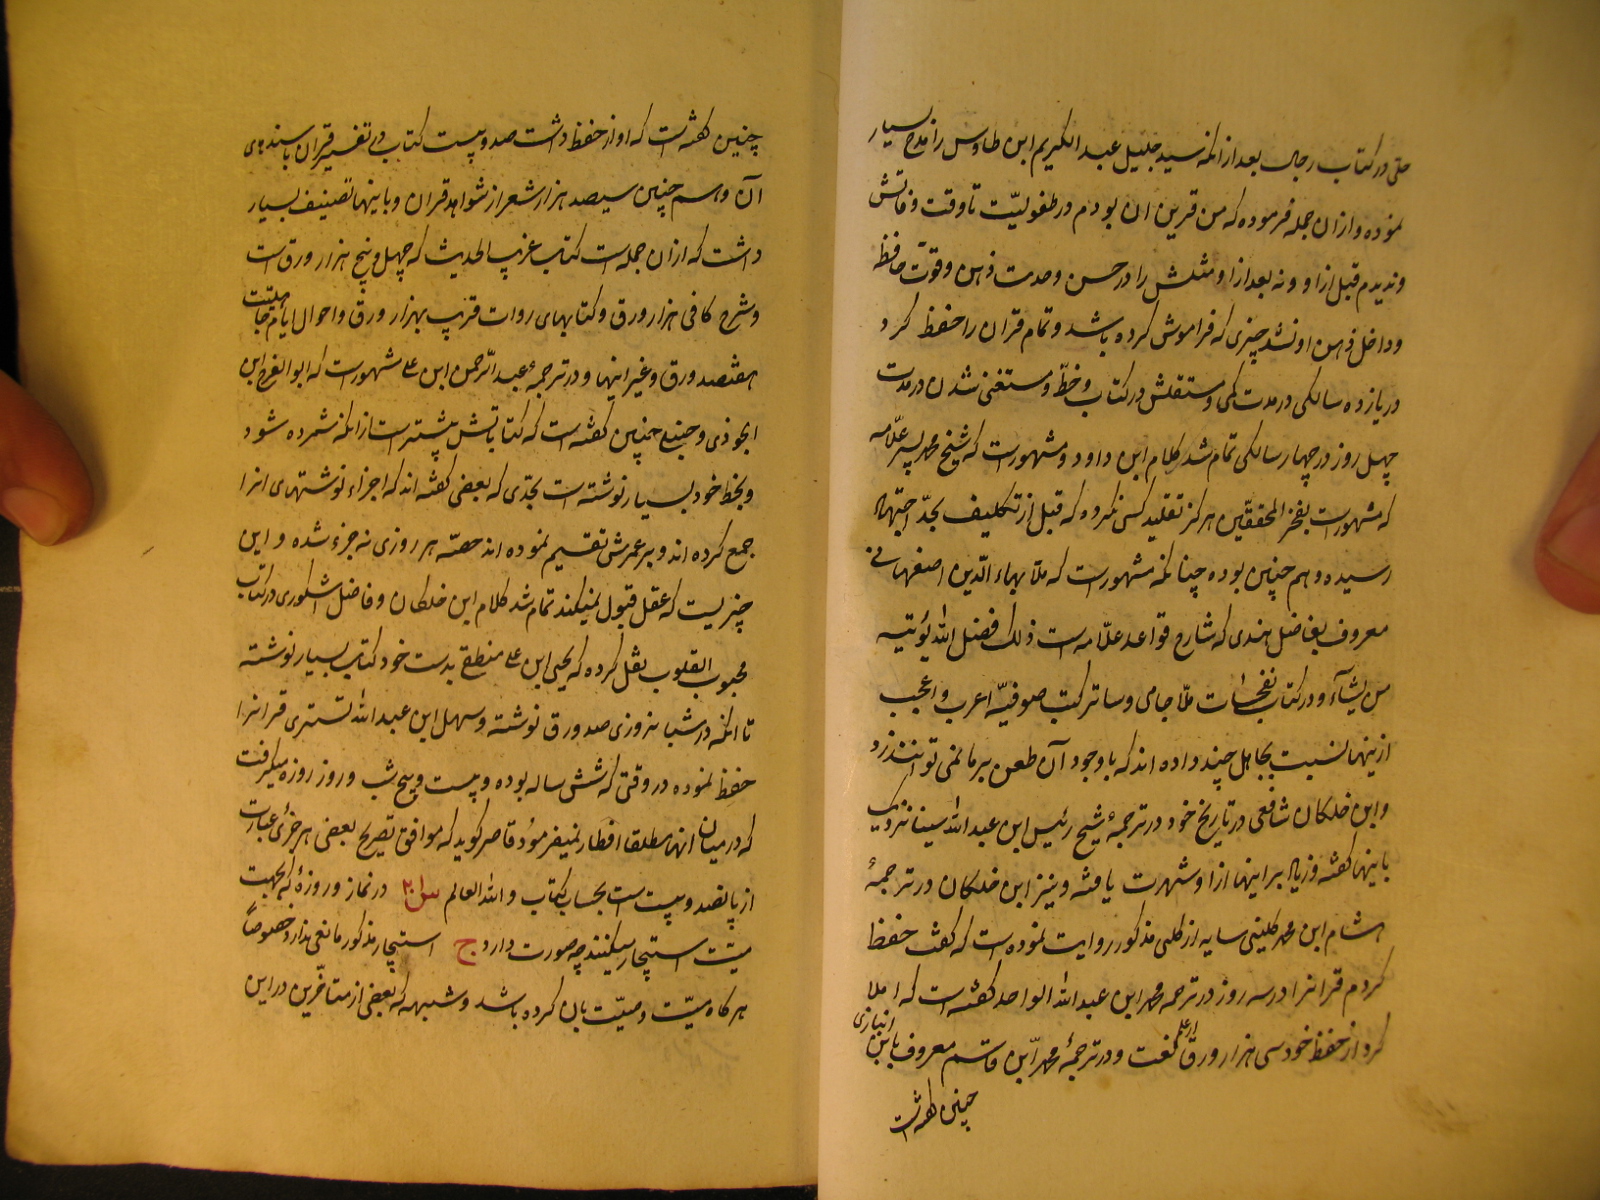 حلی در کتاب رجال بعد از انکه سید جلیل عبد الکریم ابن طاوس را مدح بسیار
نموده و از ان جمله فرموده که من قرین ان بودم در طفولیّت تا وقت وفاتش
و ندیدم قبل از او و نه بعد از او مثلش را در حسن و حدت ذهن و قوّت حافظه
و داخل ذهن او نشد چیزی که فراموش کرده باشد و تمام قران را حفظ کرد
در یازده سالکی در مدت کمی و مستقلش در کتاب و خطّ و مستغنی شدن در مدت
چهل روز در چهار سالکی تمام شد کلام ابن داود و مشهورست که شیخ محمد پسر علّامه
که مشهورست بفخر المحققّین هرکز تقلید کسی نکرده که قبل از تکلیف بحدّ اجتهاد
رسیده و هم چنین بوده چنانکه مشهورست که ملّا بهاء الدّین اصفهانی
معروف بفاضل هندی که شارح قواعد علّامه است ذلک فضل الله یؤتیه
من یشآء و در کتاب نفحات ملّا جامی و سائر کتب صوفیّه اغرب و اعجب
از ینها نسبت بجاهل چند داده اند که با وجود آن طعن بر ما نمی توانند زد
و ابن خلکان شافعی در تاریخ خود در ترجمهٔ شیخ رئیس ابن عبد الله سینا نزدیک
باینها کفته و زیاده بر اینها از او شهرت یافته و نیز ابن خلکان در ترجمهٔ
هشام ابن محمد کلینی سایه از کلبی مذکور روایت نموده است که کفت حفظ
کردم قرانرا در سه روز در ترجمه محمد ابن عبد الله الواحد کفته است که املا
کرد از حفظ خود سی هزار ورق از علم لغت و در ترجمهٔ محمد ابن قاسم معروف بابن انباری
چنین کفته است
چنین کفته است که او از حفظ داشت صد و بیست کتاب در تفسیر قران با سندهای
آن و هم چنین سیصد هزار شعر از شواهد قران و با ینها تصنیف بسیار
داشت که از ان جمله است کتاب غریب الحدیث که چهل و پنج هزار ورق است
و شرح کافی هزار ورق و کتابهای روات قریب بهزار ورق و احوال ایام جاهلیّت
هفتصد ورق و غیر اینها و در ترجمهٔ عبد الرّحمن ابن علی مشهورست که ابو الفرج ابن
الجوذی و جنبلی چنین کفته است که کتاباتش بیشتر است از انکه شمرده شود
و بخط خود بسیار نوشته است بحّدی که بعضی کفته اند که اجزاء نوشتهای انرا
جمع کرده اند و بر عمرش تقسیم نموده اند حصّه هر روزی نه جزء شده و این
چیزیست که عقل قبول نمیکند تمام شد کلام ابن خلکان و فاضل اشکوری در کتاب
محبوب القلوب نقل کرده که یحیی ابن علی منطقی بدست خود کتاب بسیار نوشته
تا انکه در شبا نروزی صد ورق نوشته و سهل ابن عبد الله تستری قرانرا
حفظ نموده در وقتی که شش ساله بوده و بیست و پنج شب و روز روزه میکرفت
که در میان انها مطلقا افطار نمیفرمود قاصر کوید که موافق تصریح بعضی هر جزئی عبارت
از پانصد و بیست است بحساب کتاب و الله العالم س ۲۰۱ در نماز و روزهٔ که بجهت
میّت استیجار میکنند چه صورت دارد ج استیجار مذکور مانعی ندارد خصوصاً
هر کاه میّت وصیّت بان کرده باشد و شبهه که بعضی از متاخّرین در این